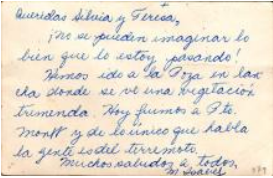 Queridas Silvia y Teresa,
¡No se pueden imaginar lo
bien que lo estoy pasando!
Hemos ido a la Poza en lan
cha donde se vé una vegetación
tremenda. Hoy fuimos a Pto.
Montt y de lo único que habla
la gente es del terremoto.
Muchos saludos a todos,
M. Isabel